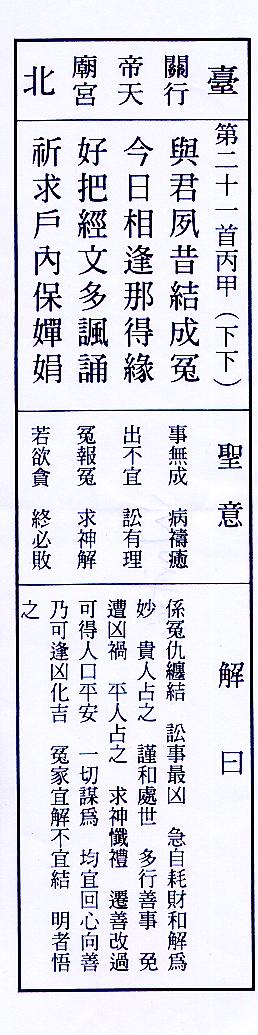 臺
關行
帝天
廟宮
北
第二十一首丙甲(下下)
與君夙昔結成冤
今日相逢那得緣
好把經文多諷誦
祈求戶內保嬋娟
聖意
事無成 病禱癒
出不宜 訟有理
冤報冤 求神解
若欲貪 終必敗
解曰
係冤仇纏結 訟事最凶 急自耗財和解爲
妙 貴人占之 謹和處世 多行善事 免
遭凶禍 平人占之 求神懺禮 遷善改過
可得人口平安 一切謀爲 均宜回心向善
乃可逢凶化吉 冤家宜解不宜結 明者悟
之